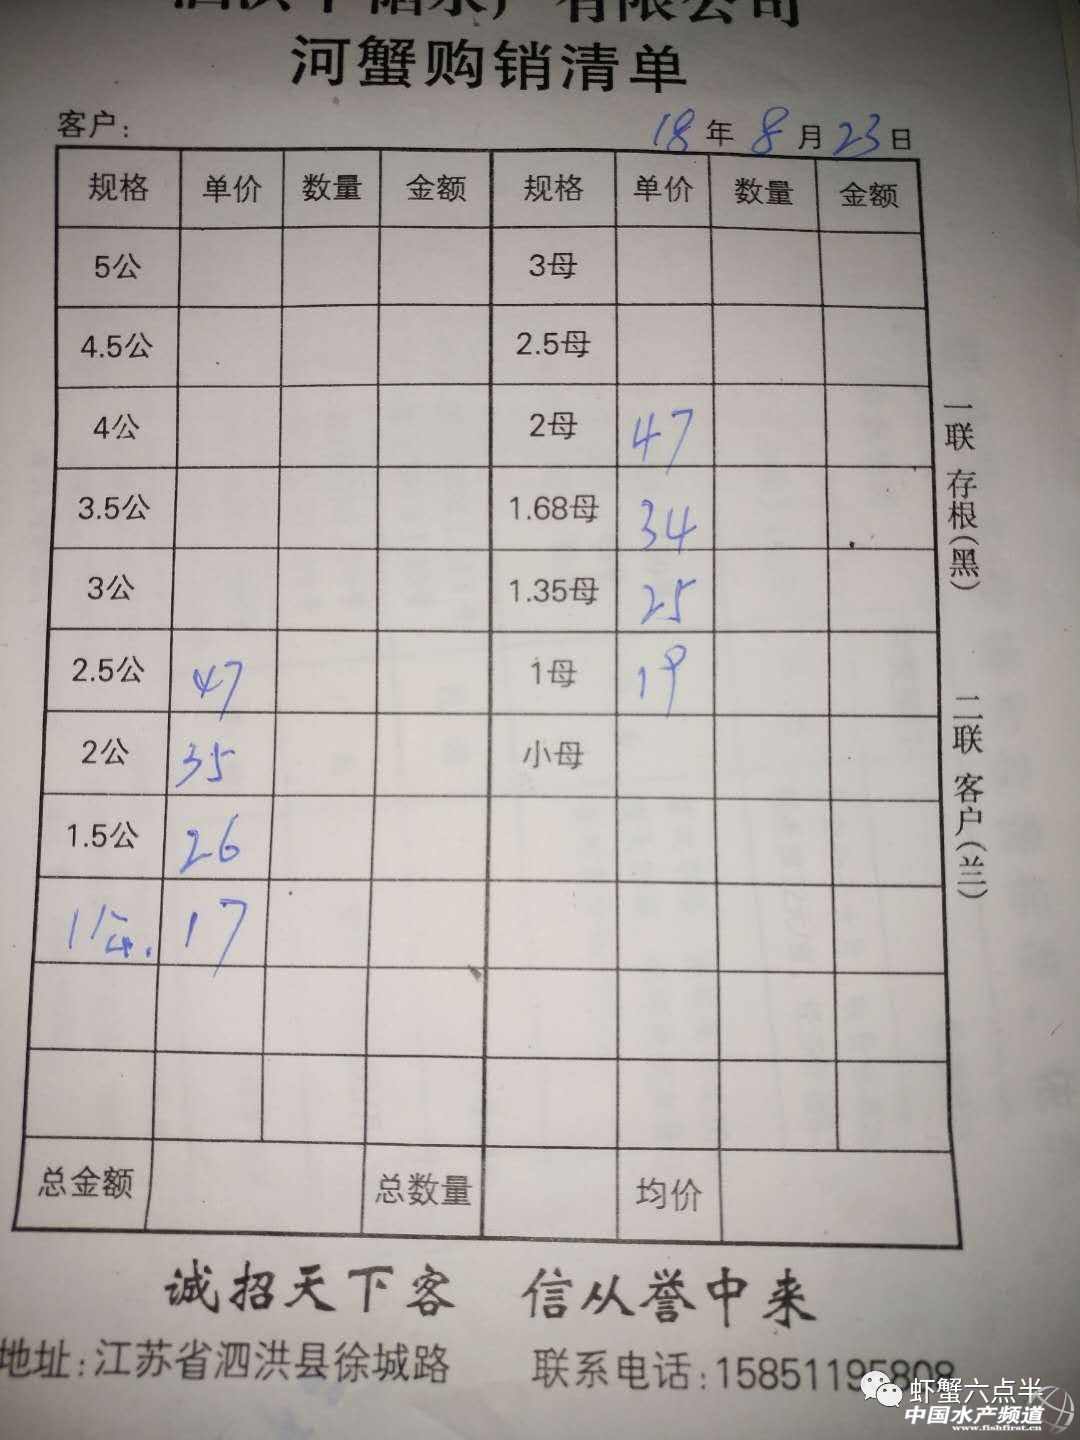 水产有限公司
河蟹购销清单
客户: 18年8月23日
规格 单价 数量 金额 规格 单价 数量 金额
5公 3母
4.5公 2.5母
4公 2母 47
3.5公 1.68母 34
3公 1.35母 25
2.5公 47 1母 19
2公 35 小母
1.5公 26
1公. 17
总金额 总数量 均价
一联 存根(黑) 二联 客户(兰)
诚招天下客 信从誉中来
地址:江苏省泗洪县徐城路 联系电话:15851195808
虾蟹六点半
中国水产频道
www.fishfirst.cn